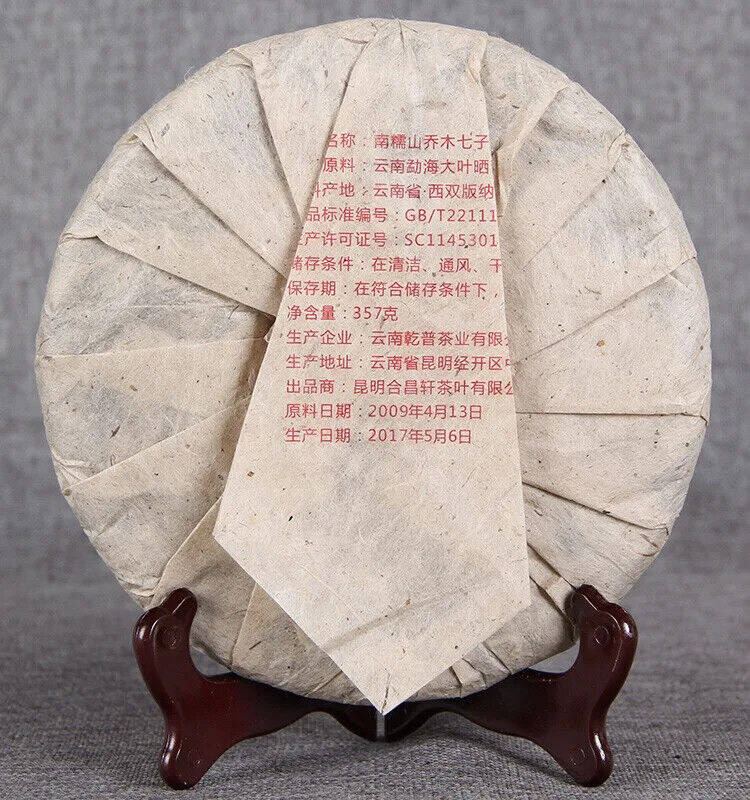 名称：南糯山乔木七子
原料：云南勐海大叶晒
料产地：云南省·西双版纳
品标准编号：GB/T22111
产许可证号：SC1145301
储存条件：在清洁、通风、干
保存期：在符合储存条件下，
净含量：357克
生产企业：云南乾普茶业有限公
生产地址：云南省昆明经开区
出品商：昆明合昌轩茶叶有限公
原料日期：2009年4月13日
生产日期：2017年5月6日